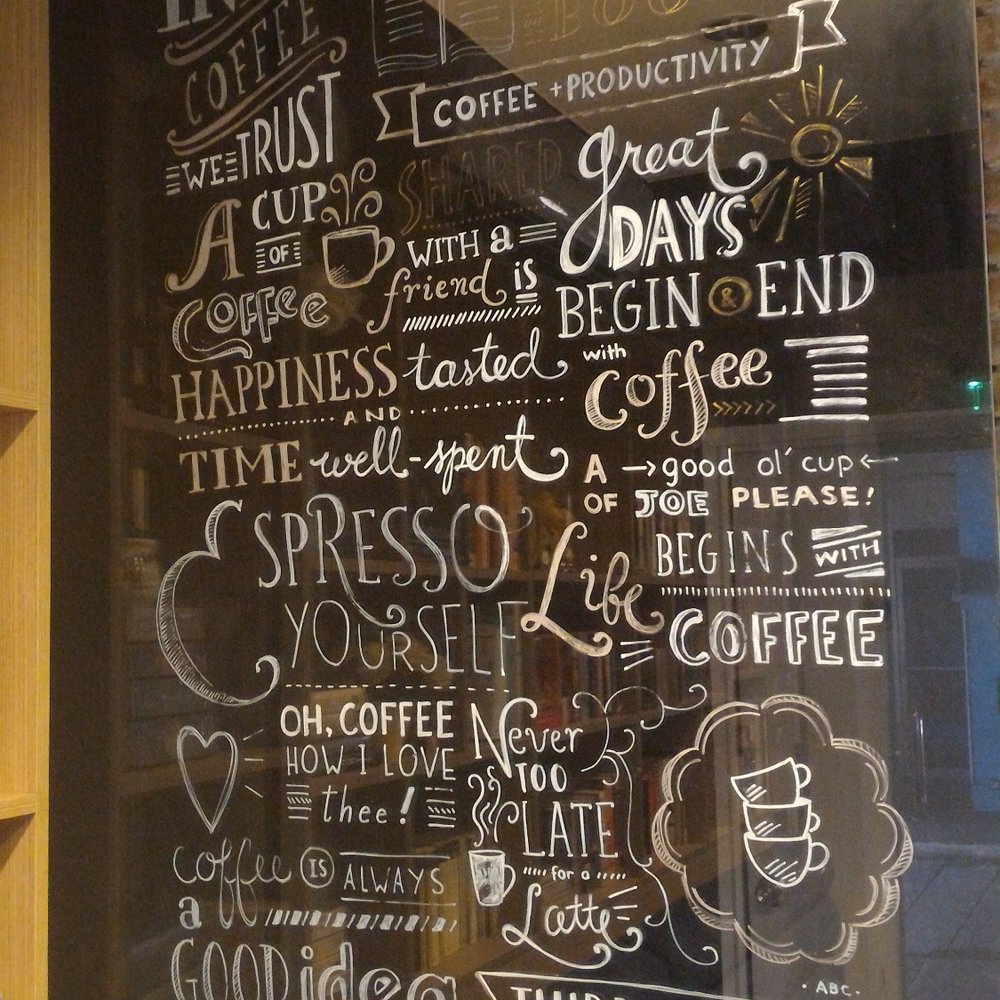 COFFEE
WE TRUST
COFFEE + PRODUCTIVITY
A CUP OF COFFEE
SHARED
WITH a friend IS
HAPPINESS tasted
AND
TIME well-spent
great
DAYS
BEGIN & END
with coffee
A → good ol' cup ←
OF JOE PLEASE!
ESPRESSO
YOURSELF
Life BEGINS WITH
COFFEE
OH, COFFEE
HOW I LOVE
thee!
Never
TOO
LATE
for a
Latte
coffee IS ALWAYS
a
GOOD idea
ABC.